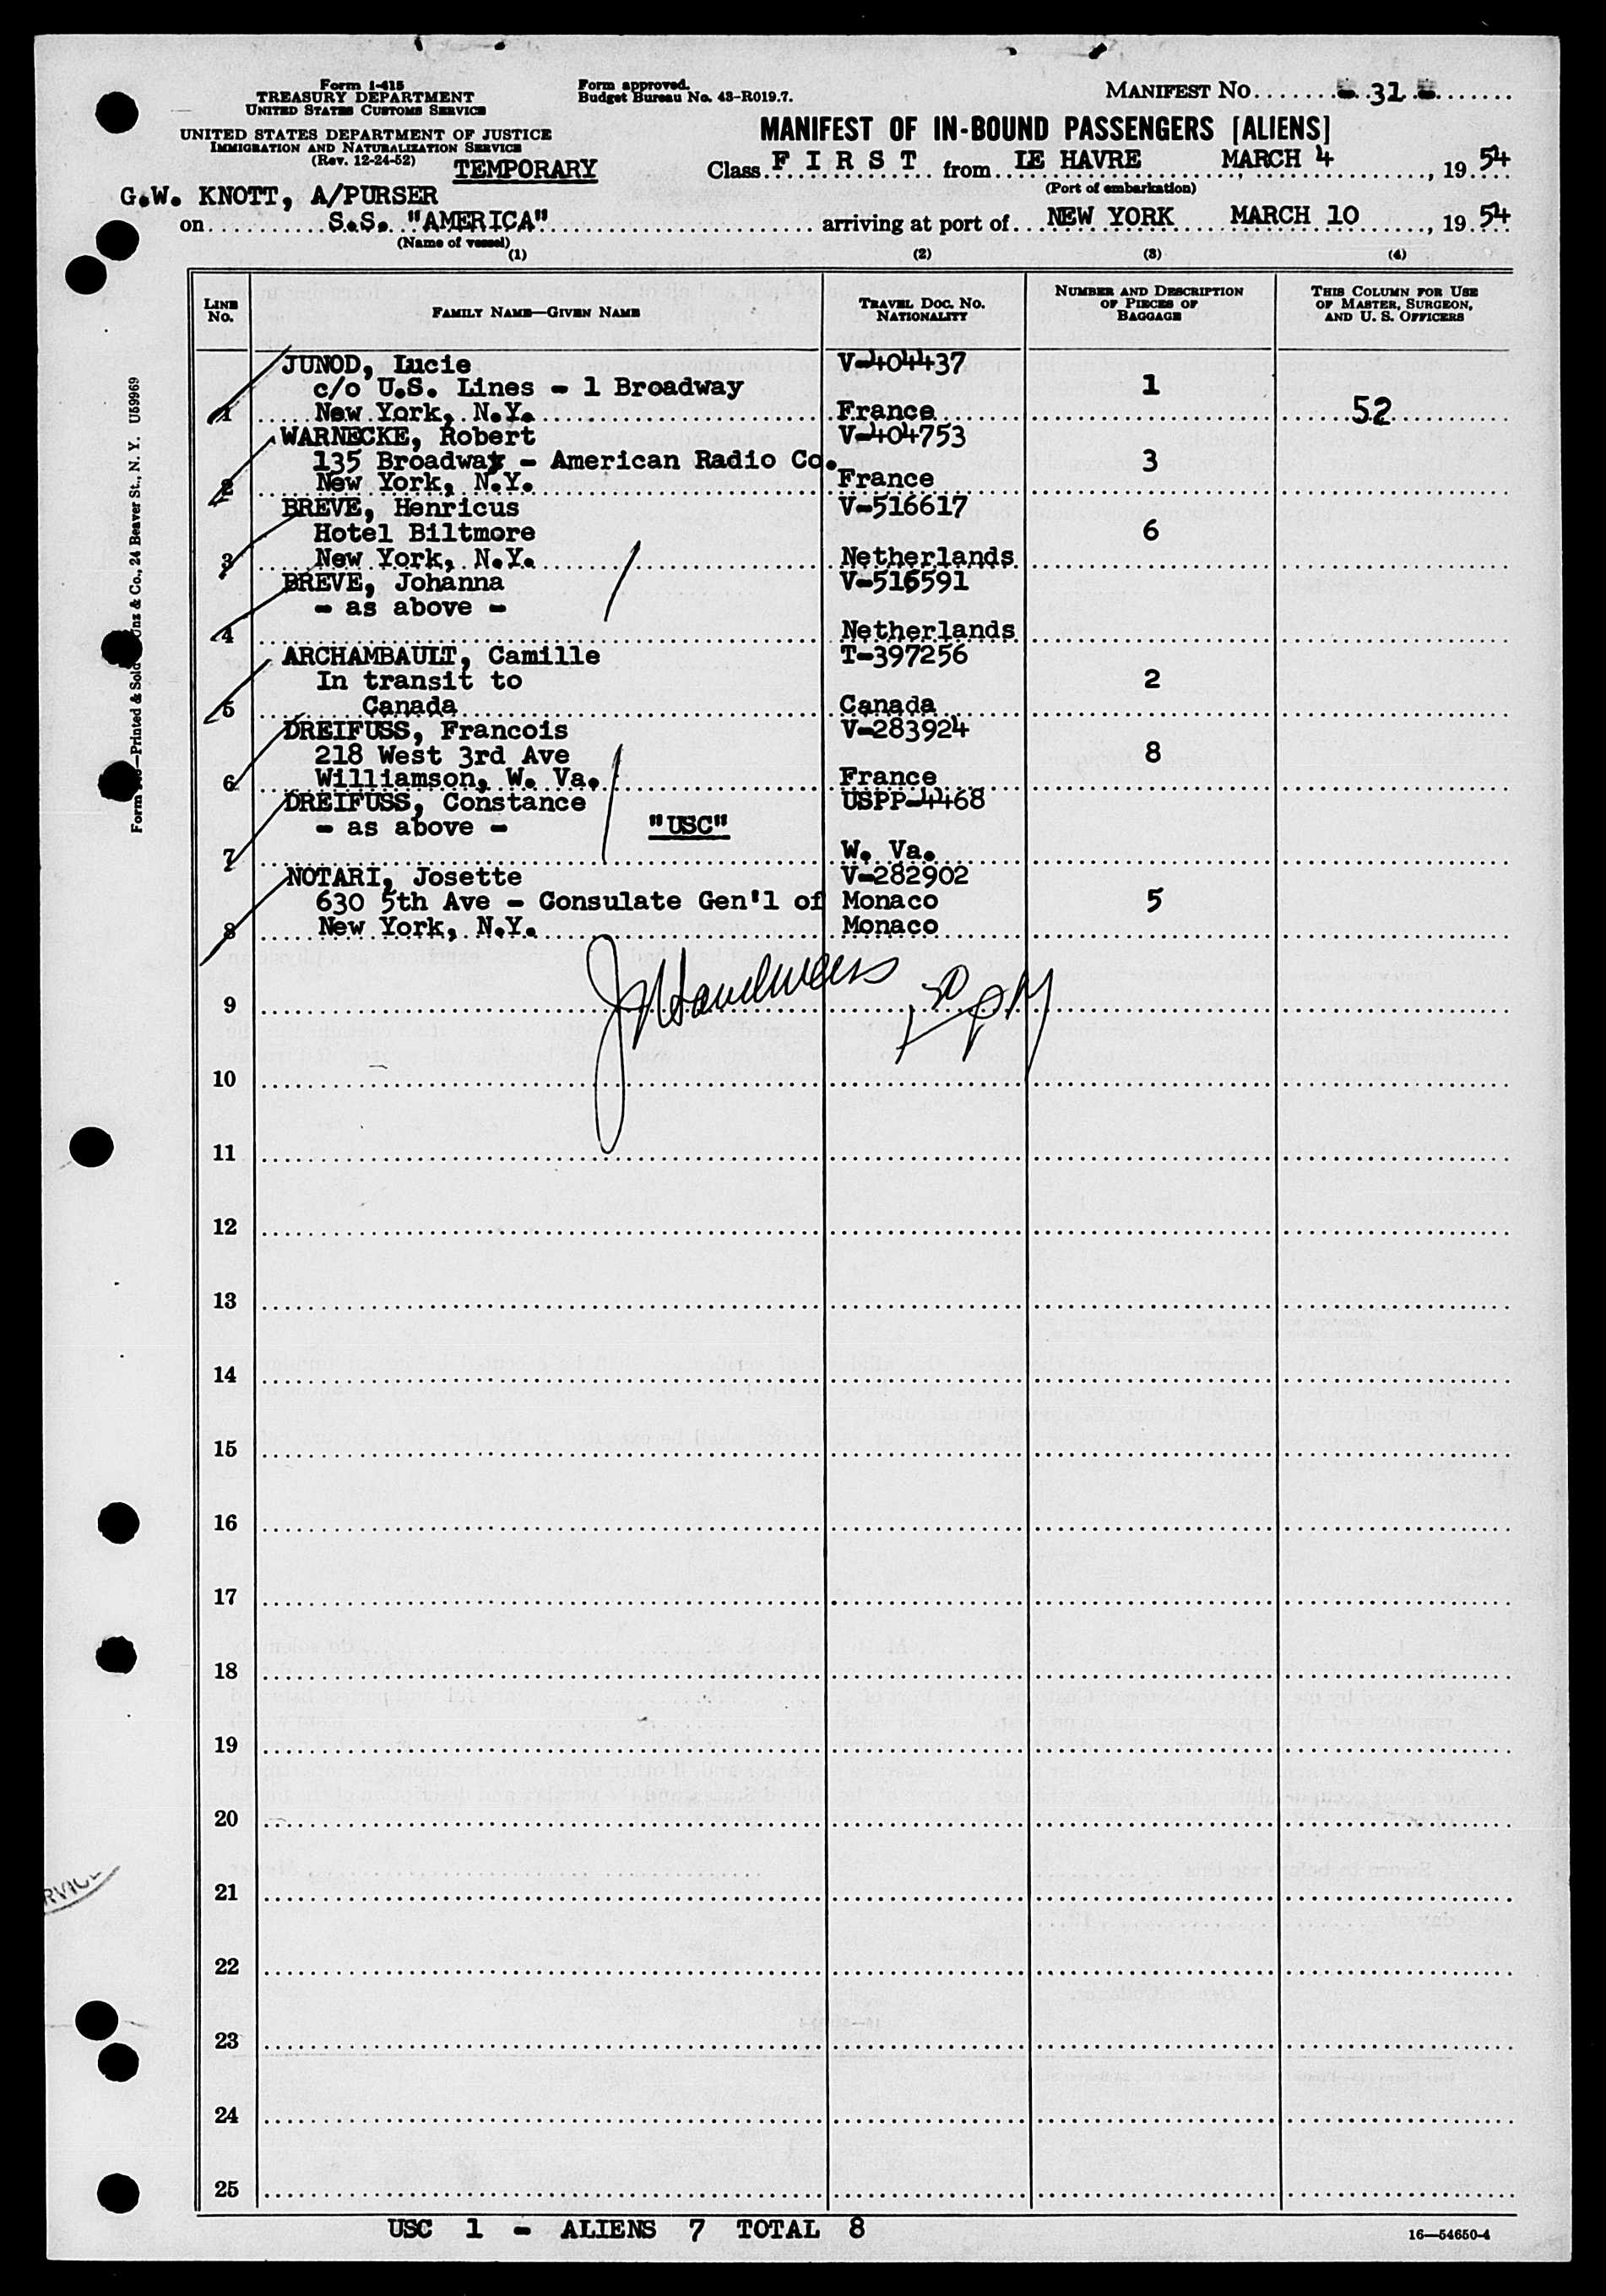 Form I-415
TREASURY DEPARTMENT
UNITED STATES CUSTOMS SERVICE
UNITED STATES DEPARTMENT OF JUSTICE
IMMIGRATION AND NATURALIZATION SERVICE
(Rev. 12-24-52) TEMPORARY
Form approved.
Budget Bureau No. 43-R019.7.
MANIFEST NO. 31
MANIFEST OF IN-BOUND PASSENGERS [ALIENS]
Class F I R S T from LE HAVRE MARCH 4, 19 54
(Port of embarkation)
G.W. KNOTT, A/PURSER
on S.S. "AMERICA" arriving at port of NEW YORK MARCH 10, 19 54
(Name of vessel)
(1) (2) (3) (4)
LINE NO. FAMILY NAME—GIVEN NAME TRAVEL DOC. NO. NATIONALITY NUMBER AND DESCRIPTION OF PIECES OF BAGGAGE THIS COLUMN FOR USE OF MASTER, SURGEON, AND U. S. OFFICERS
JUNOD, Lucie V-404437
c/o U.S. Lines - 1 Broadway 1
1 New York, N.Y. France 52
WARNECKE, Robert V-404753
135 Broadway - American Radio Co. 3
2 New York, N.Y. France
BREVE, Henricus V-516617
Hotel Biltmore 6
3 New York, N.Y. Netherlands
BREVE, Johanna V-516591
- as above -
4 Netherlands
ARCHAMBAULT, Camille T-397256
In transit to 2
5 Canada Canada
DREIFUSS, Francois V-283924
218 West 3rd Ave 8
6 Williamson, W. Va. France
DREIFUSS, Constance USPP-4468
- as above - "USC"
7 W. Va.
NOTARI, Josette V-282902
630 5th Ave - Consulate Gen'l of Monaco 5
8 New York, N.Y. Monaco
9
10
11
12
13
14
15
16
17
18
19
20
21
22
23
24
25
USC 1 - ALIENS 7 TOTAL 8
16—54650-4
—Printed & Sold
& Co., 24 Beaver St., N. Y. U59969